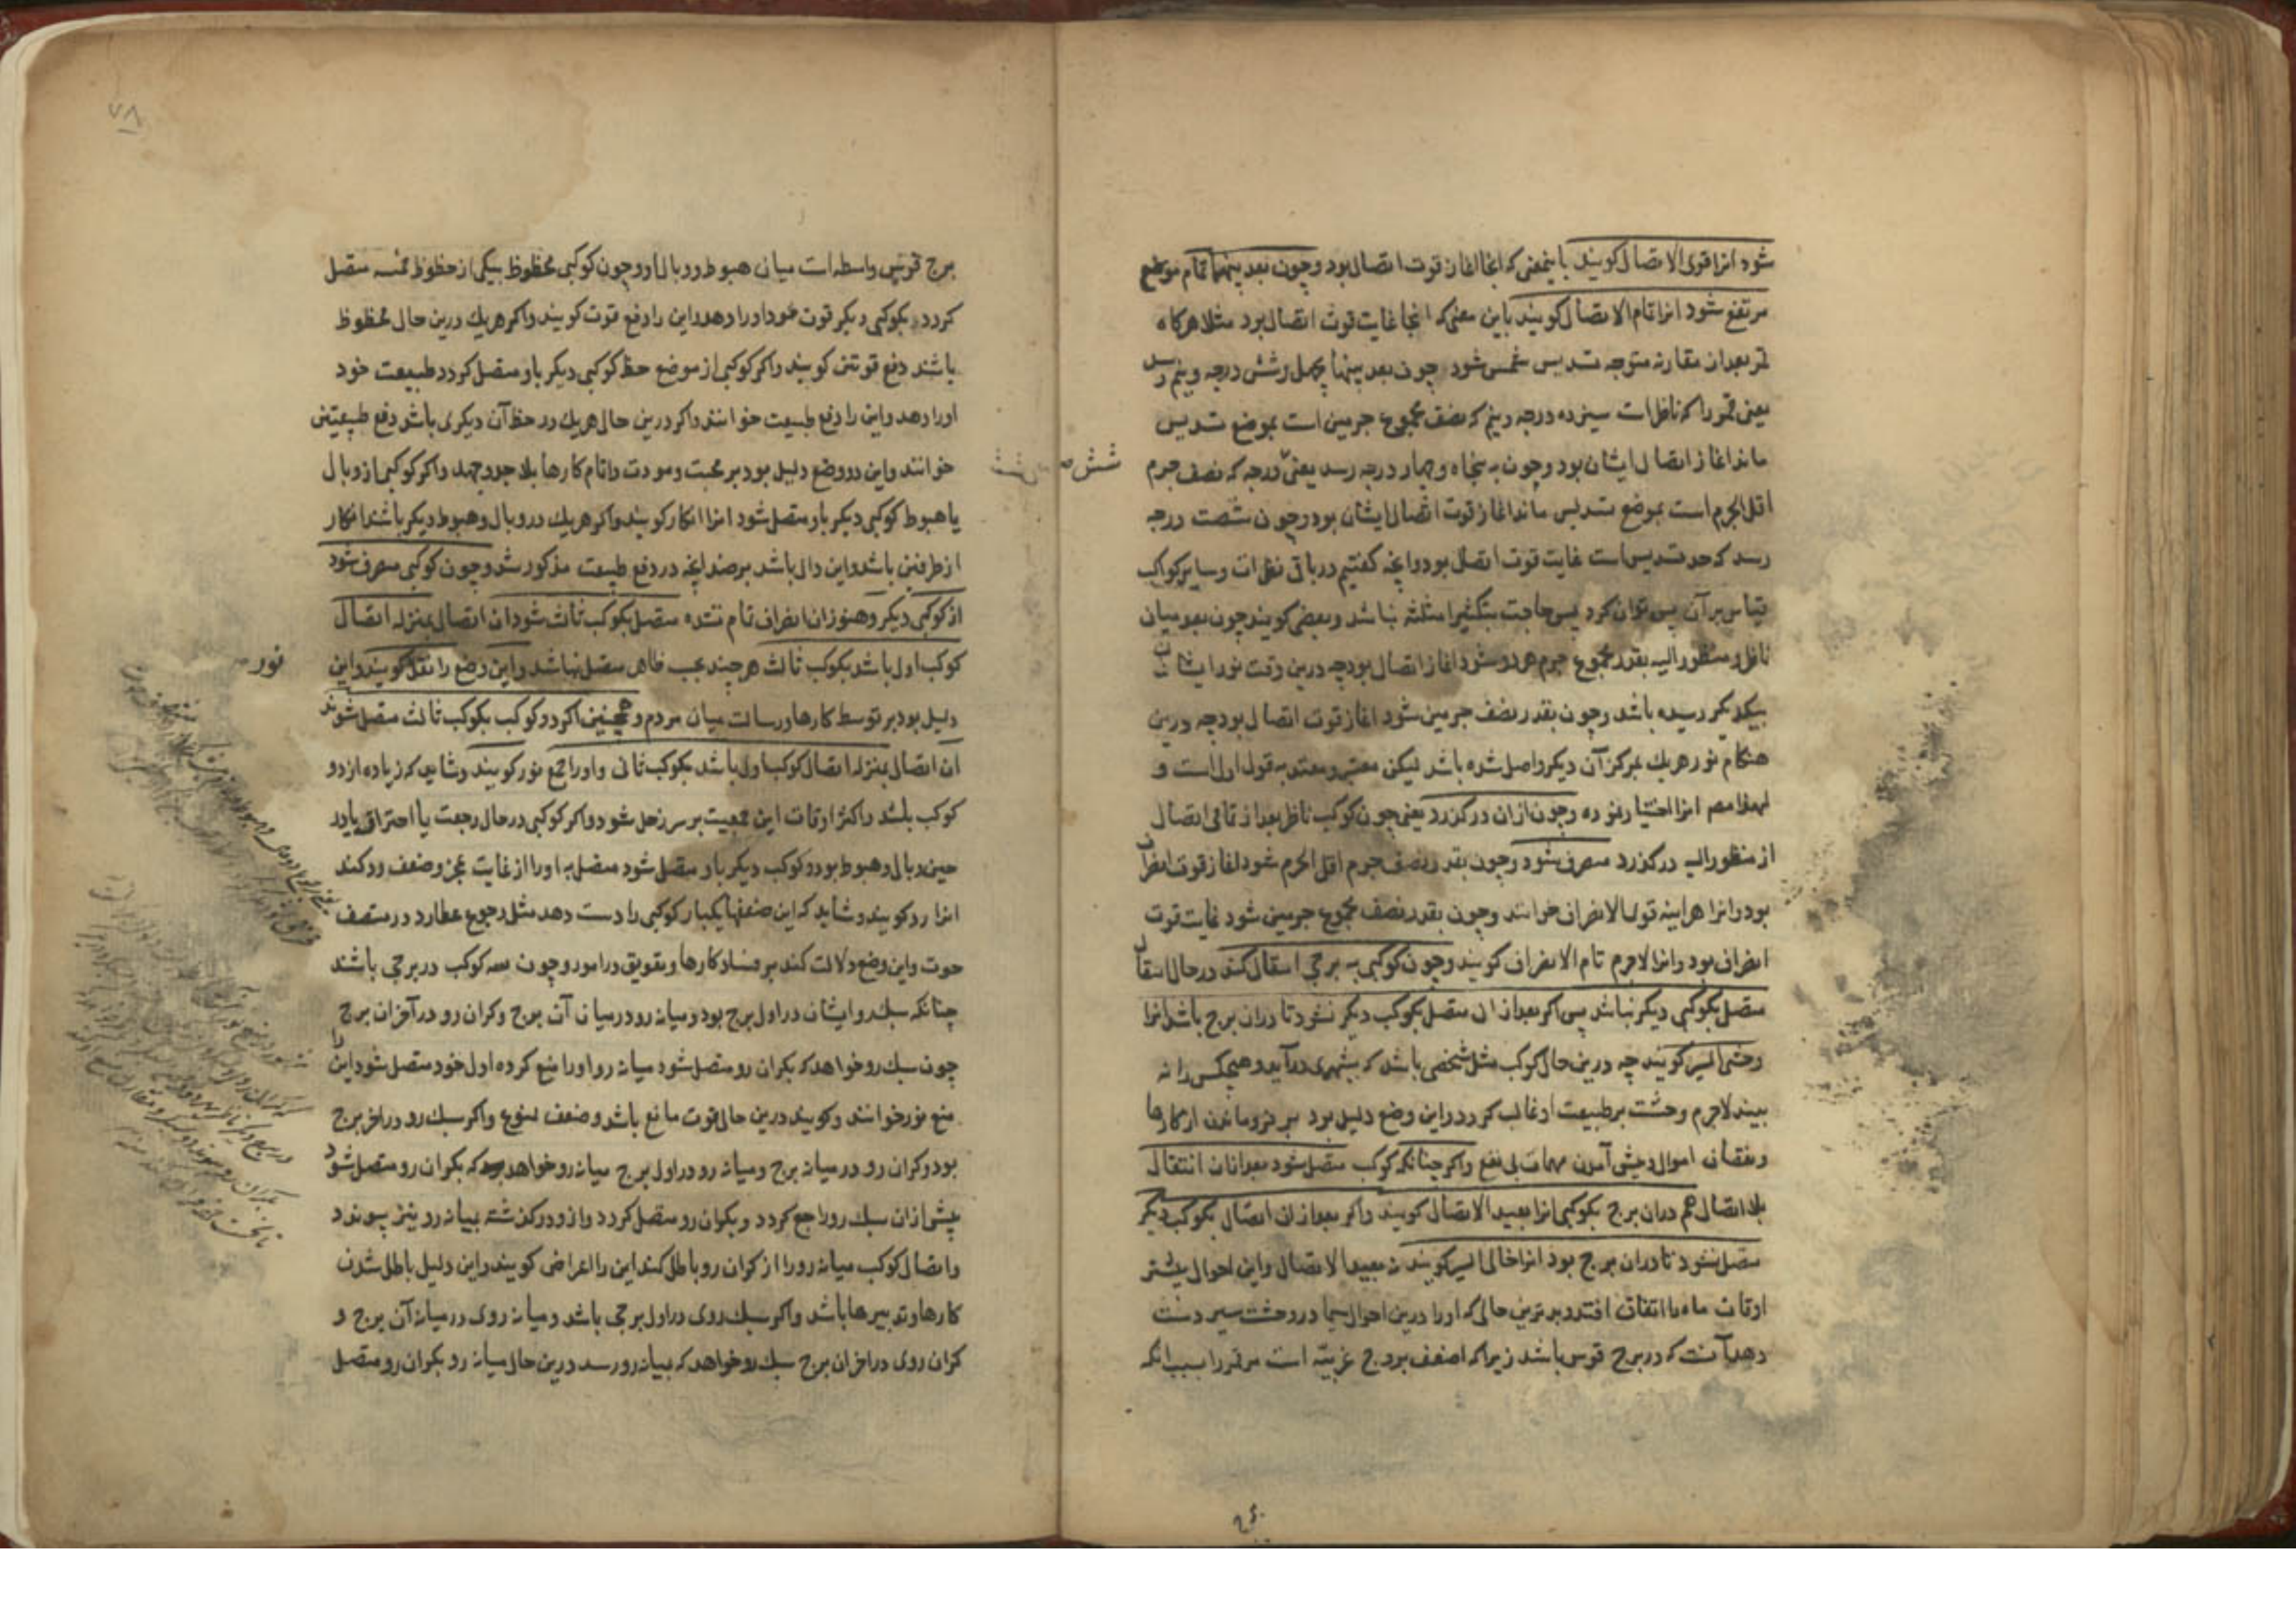 شود انرا قوی الاتصال کویند باینمعنی که انجا اغاز قوت اتصال بود و چون بعد بینهما تمام موضع
مرتفع شود انرا تام الاتصال کویند باین معنی که انجا غایت قوت اتصال بود مثلا هرکاه
قمر بعد از مقارنه متوجه تسدیس شمس شود چون بعد بینهما بچهل و شش درجه و نیم رسد
یعنی قمر را که ناظر است سیزده درجه و نیم که نصف مجموع جرمین است بموضع تسدیس
ماند اغاز اتصال ایشان بود و چون به پنجاه و چهار درجه رسد یعنی درجه که نصف جرم
شش
اقل الجرم است بموضع تسدیس ماند اغاز قوت اتصال ایشان بود و چون شصت درجه
رسد که حد تسدیس است غایت قوت اتصال بود و انچه کفتیم در باقی نظرات و سایر کواکب
قیاس بر آن پس توان کرد پس حاجت بتکثیر امثله نباشد و بعضی کویند چون بعد میان
ناظر و منظور الیه بقدر مجموع جرم هر دو شود اغاز اتصال بود چه درین وقت نور ایشان
بیکدیکر رسیده باشد و چون بقدر نصف جرمین شود اغاز قوت اتصال بود چه درین
هنکام نور هریک بمرکز آن دیکر واصل شده باشد لیکن معتبر و معتد به قول اول است و
لهذا مصر انرا اختیار نموده و چون ازان درکذرد یعنی چون کوکب ناظر بعد از تمامی اتصال
از منظور الیه درکذرد منصرف شود و چون بقدر نصف جرم اقل الجرم شود اغاز قوت انصراف
بود و انرا هراینه قوی الانصراف خوانند و چون بقدر نصف مجموع جرمین شود غایت قوت
انصراف بود و انرا لاجرم تام الانصراف کویند و چون کوکبی به برجی انتقال کند در حال انتقال
متصل بکوکبی دیکر نباشد پس اکر بعد از ان متصل بکوکب دیکر نشود تا دران برج باشد انرا
وحشی السیر کویند چه درین حال کوکب مثل شخصی باشد که بشهری درآید و هیچکس را نه
بیند لاجرم وحشت بر طبیعت او غالب کردد و این وضع دلیل بود بر فروماندن از کارها
و نقصان اموال و پیش آمدن مهمات بی نفع و اکر چنانکه کوکب متصل شود بعد ازان انتقال
بلا اتصال هم دران برج بکوکبی انرا بعید الاتصال کویند و اکر بعد از ان اتصال بکوکب دیکر
متصل نشود تا دران برج بود انرا خالی السیر کویند نه بعید الاتصال و این احوال بیشتر
اوقات ماه را اتفاق افتد و بدترین حالی که او را درین احوال سیما در وحشت سیر دست
دهد آنست که در برج قوس باشد زیرا که اضعف بروج غریبه است مر قمر را بسبب انکه
۶۹
۷۸
برج قوس واسطه است میان هبوط و وبال او و چون کوکبی محظوظ بیکی از حظوظ خمسه متصل
کردد بکوکبی دیکر قوت خود او را دهد و این را دفع قوت کویند و اکر هریک درین حال محظوظ
باشند دفع قوتین کویند و اکر کوکبی از موضع حظ کوکبی دیکر باو متصل کردد طبیعت خود
اورا دهد و این را دفع طبیعت خوانند و اکر درین حال هریک در حظ آن دیکری باشد دفع طبیعتین
خوانند و این دو وضع دلیل بود بر محبت و مودت و اتمام کارها بلا جد و جهد و اکر کوکبی از وبال
یا هبوط کوکبی دیکر باو متصل شود انرا انکار کویند و اکر هریک در وبال و هبوط دیکر باشند انکار
از طرفین باشد و این دال باشد بر ضد انچه در دفع طبیعت مذکور شد و چون کوکبی منصرف شود
از کوکبی دیکر و هنوز ازان انصراف تام نشده متصل بکوکب ثالث شود ان اتصال بمنزله اتصال
کوکب اول باشد بکوکب ثالث هرچند بحسب ظاهر متصل نباشد و این وضع را نقل کویند و این
نور
دلیل بود بر توسط کارها و رسالت میان مردم و همچنین اکر دو کوکب بکوکب ثالث متصل شوند
ان اتصال بمنزله اتصال کوکب اول باشد بکوکب ثانی و او را جمع نور کویند و شاید که زیاده از دو
کوکب باشد و اکثر اوقات این جمعیت بر سر زحل شود و اکر کوکبی در حال رجعت یا احتراق یا در
حین وبال و هبوط بود و کوکب دیکر باو متصل شود متصل به او را از غایت عجز و ضعف رد کند
انرا رد کویند و شاید که این ضعفها یکبار کوکبی را دست دهد مثل رجوع عطارد در منتصف
حوت و این وضع دلالت کند بر فساد کارها و تعویق در امور و چون سه کوکب در برجی باشند
چنانکه سبک رو ایشان در اول برج بود و میانه رو در میان آن برج و کران رو در آخر ان برج
چون سبک رو خواهد که بکران رو متصل شود میانه رو او را منع کرده اول خود متصل شود این را
منع نور خوانند و کویند درین حال قوت مانع باشد و ضعف ممنوع و اکر سبک رو در اخر برج
بود و کران رو در میانه برج و میانه رو در اول برج میانه رو خواهد که بکران رو متصل شود
پیش ازان سبک رو راجع کردد و بکران رو متصل کردد و ازو درکذشته بمیانه رو نیز پیوندد
و اتصال کوکب میانه رو را از کران رو باطل کند این را اعراض کویند و این دلیل باطل شدن
کارها و تدبیرها باشد و اکر سبک روی در اول برجی باشد و میانه روی در میانه آن برج و
کران روی در اخر ان برج سبک رو خواهد که بمیانه رو رسد درین حال میانه رو بکران رو متصل